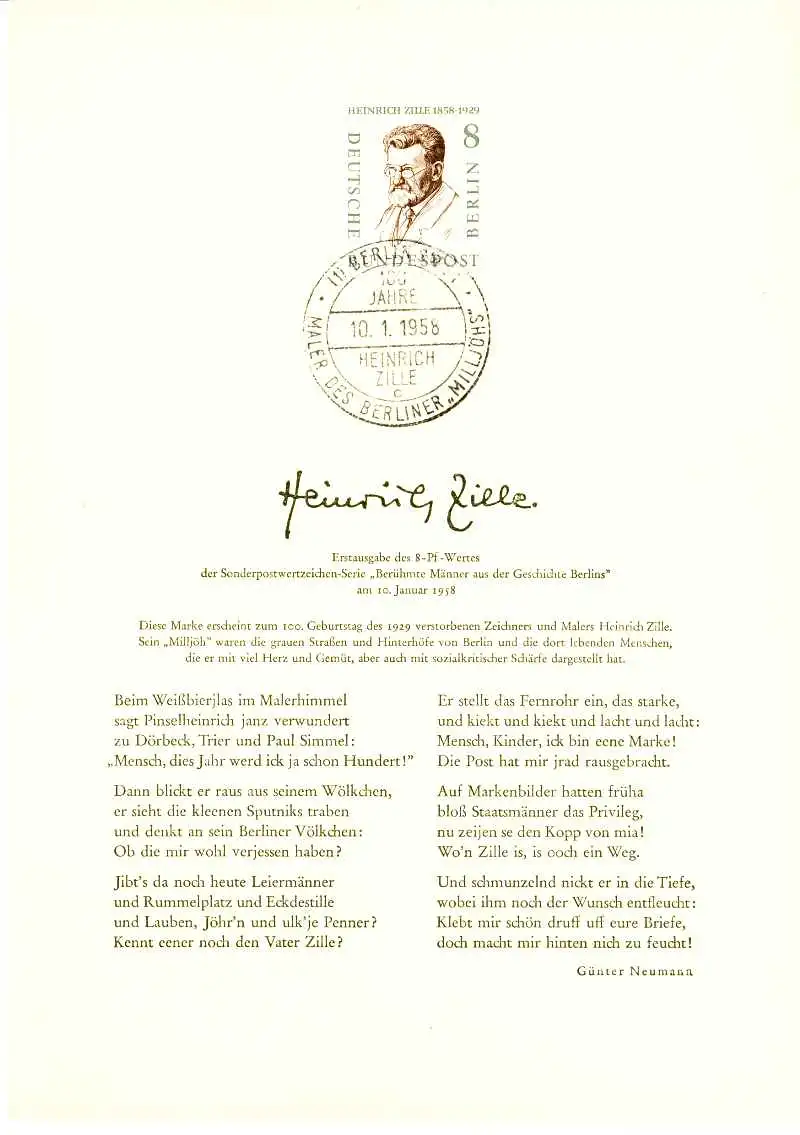 HEINRICH ZILLE 1858-1929
8
DEUTSCHE
BERLIN
BUNDESPOST
(1) BERLIN
100
JAHRE
10. 1. 1958
HEINRICH
ZILLE
c
MALER DES BERLINER „MILLJÖHS"
Heinrich Zille.
Erstausgabe des 8-Pf-Wertes
der Sonderpostwertzeichen-Serie „Berühmte Männer aus der Geschichte Berlins"
am 10. Januar 1958
Diese Marke erscheint zum 100. Geburtstag des 1929 verstorbenen Zeichners und Malers Heinrich Zille.
Sein „Milljöh" waren die grauen Straßen und Hinterhöfe von Berlin und die dort lebenden Menschen,
die er mit viel Herz und Gemüt, aber auch mit sozialkritischer Schärfe dargestellt hat.
Beim Weißbierjlas im Malerhimmel
sagt Pinselheinrich janz verwundert
zu Dörbeck, Trier und Paul Simmel:
„Mensch, dies Jahr werd ick ja schon Hundert!"
Dann blickt er raus aus seinem Wölkchen,
er sieht die kleenen Sputniks traben
und denkt an sein Berliner Völkchen:
Ob die mir wohl verjessen haben?
Jibt's da noch heute Leiermänner
und Rummelplatz und Eckdestille
und Lauben, Jöhr'n und ulk'je Penner?
Kennt eener noch den Vater Zille?
Er stellt das Fernrohr ein, das starke,
und kiekt und kiekt und lacht und lacht:
Mensch, Kinder, ick bin eene Marke!
Die Post hat mir jrad rausgebracht.
Auf Markenbilder hatten früha
bloß Staatsmänner das Privileg,
nu zeijen se den Kopp von mia!
Wo'n Zille is, is ooch ein Weg.
Und schmunzelnd nickt er in die Tiefe,
wobei ihm noch der Wunsch entfleucht:
Klebt mir schön druff uff eure Briefe,
doch macht mir hinten nich zu feucht!
Günter Neumann